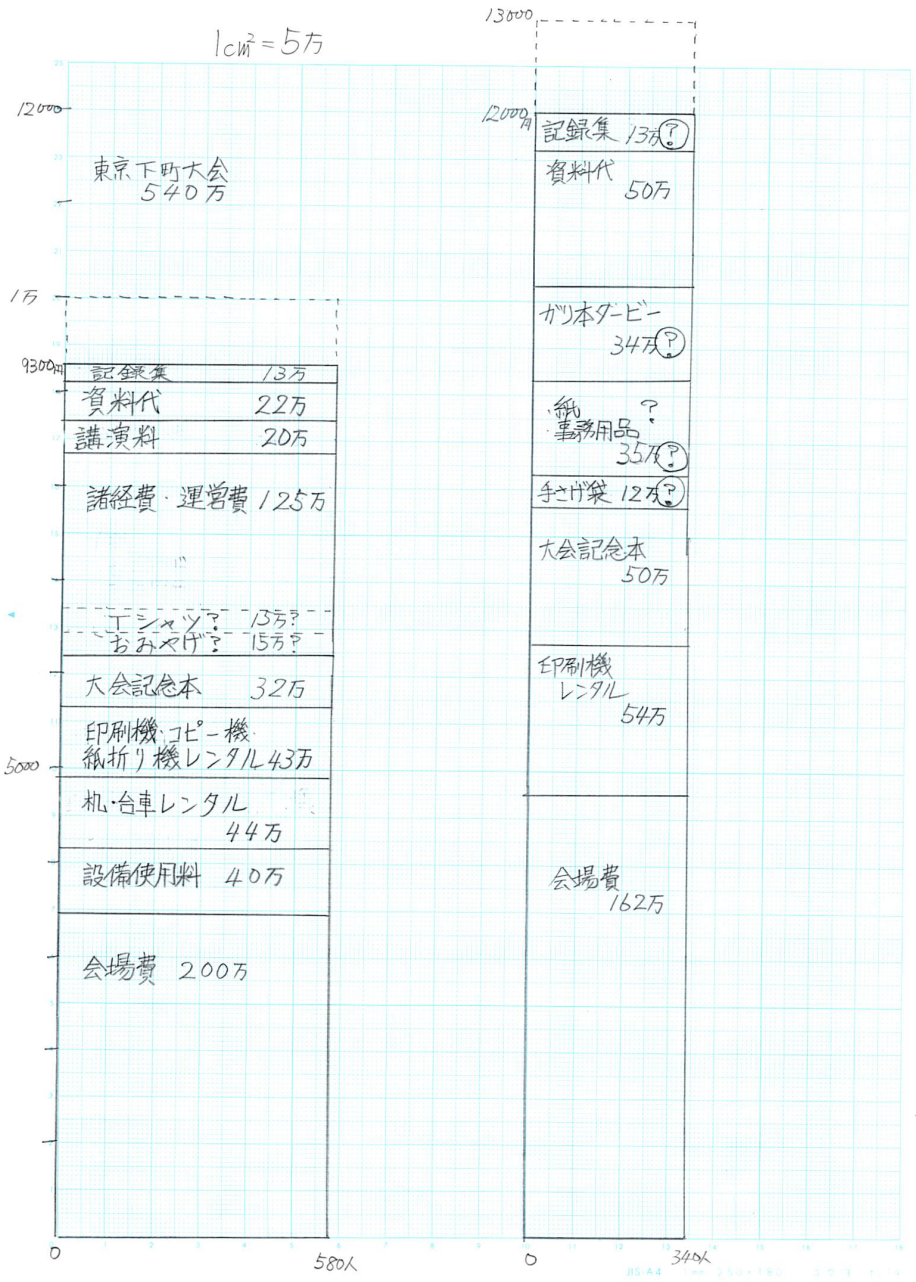 1cm²=5万
13000
12000
12000円
東京下町大会
540万
1万
9300円
記録集 13万
資料代 22万
講演料 20万
諸経費・運営費 125万
Tシャツ? 15万?
おみやげ? 15万?
大会記念本 32万
印刷機・コピー機・
紙折り機レンタル43万
5000
机・台車レンタル
44万
設備使用料 40万
会場費 200万
0
580人
記録集 13万?
資料代
50万
ガリ本ダービー
34万?
・紙 ?
・事務用品
35万?
手さげ袋 12万?
大会記念本
50万
印刷機
レンタル
54万
会場費
162万
0
340人